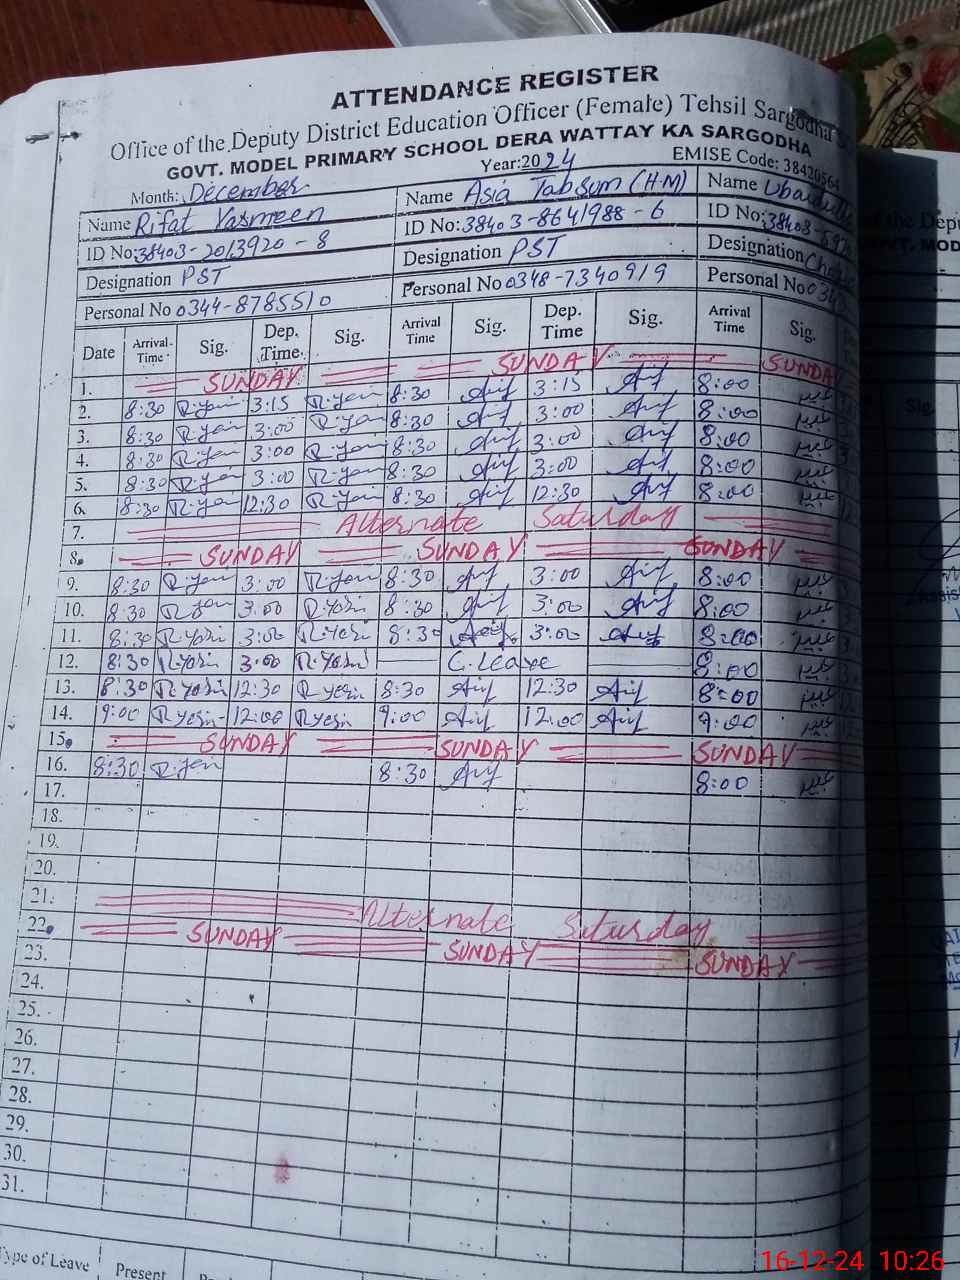 ATTENDANCE REGISTER
Office of the Deputy District Education Officer (Female) Tehsil Sargodha
GOVT. MODEL PRIMARY SCHOOL DERA WATTAY KA SARGODHA
Month: December Year:2024 EMISE Code: 38420564
Name Rifat Yasmeen Name Asia Tabsum (H-M) Name
ID No:38403-2013920-8 ID No:38403-8641988-6 ID No:38403-
Designation PST Designation PST Designation
Personal No 0344-8785510 Personal No 0348-7340919 Personal No 034
Date Arrival Time Sig. Dep. Time Sig. Arrival Time Sig. Dep. Time Sig. Arrival Time Sig.
1. SUNDAY SUNDAY SUNDAY
2. 8:30 R.yasi 3:15 R.yasi 8:30 3:15 8:00 عبیر
3. 8:30 R.yasi 3:00 R.yasi 8:30 3:00 8:00 عبیر
4. 8:30 R.yasi 3:00 R.yasi 8:30 3:00 8:00 عبیر
5. 8:30 R.yasi 3:00 R.yasi 8:30 3:00 8:00 عبیر
6. 8:30 R.yasi 12:30 R.yasi 8:30 12:30 8:00 عبیر
7. Alternate Saturday
8. SUNDAY SUNDAY SUNDAY
9. 8:30 R.yasi 3:00 R.yasi 8:30 3:00 8:00 عبیر
10. 8:30 R.yasi 3:00 R.yasi 8:30 3:00 8:00 عبیر
11. 8:30 R.yasi 3:00 R.yasi 8:30 3:00 8:00 عبیر
12. 8:30 R.yasi 3:00 R.yasi C.Leave 8:00 عبیر
13. 8:30 R.yasi 12:30 R.yasi 8:30 12:30 8:00 عبیر
14. 9:00 R.yasi 12:00 R.yasi 9:00 12:00 9:00 عبیر
15. SUNDAY SUNDAY SUNDAY
16. 8:30 R.yasi 8:30 8:00 عبیر
17.
18.
19.
20.
21. Alternate Saturday
22. SUNDAY SUNDAY SUNDAY
23.
24.
25.
26.
27.
28.
29.
30.
31.
Type of Leave Present
16-12-24 10:26